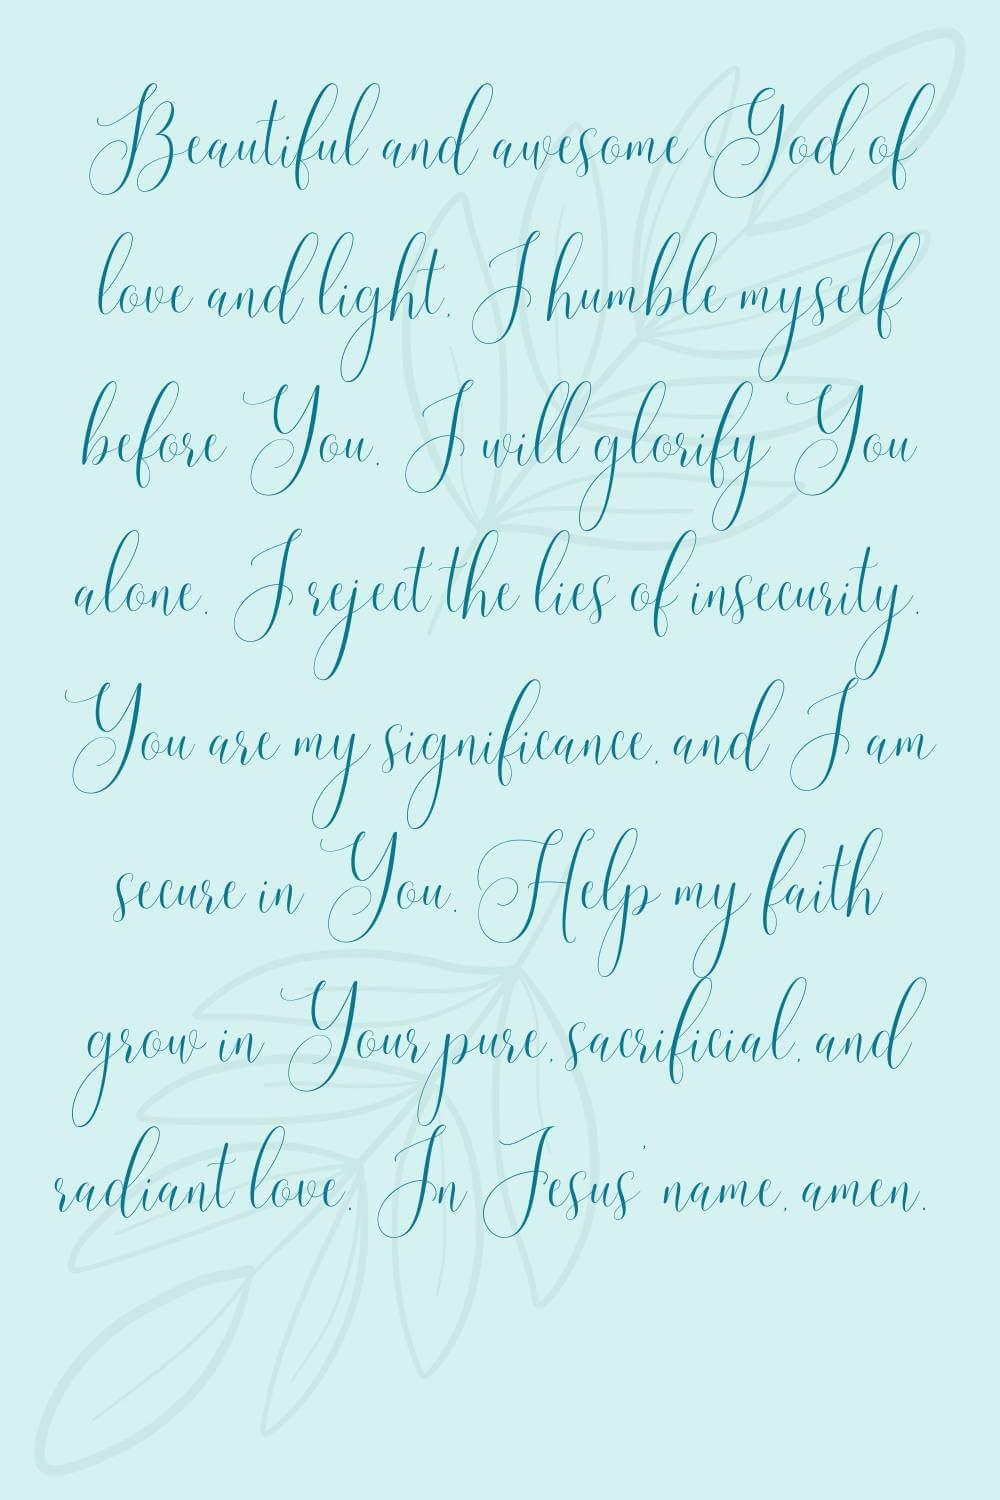 Beautiful and awesome God of
love and light, I humble myself
before You. I will glorify You
alone. I reject the lies of insecurity.
You are my significance, and I am
secure in You. Help my faith
grow in Your pure, sacrificial, and
radiant love. In Jesus' name, amen.